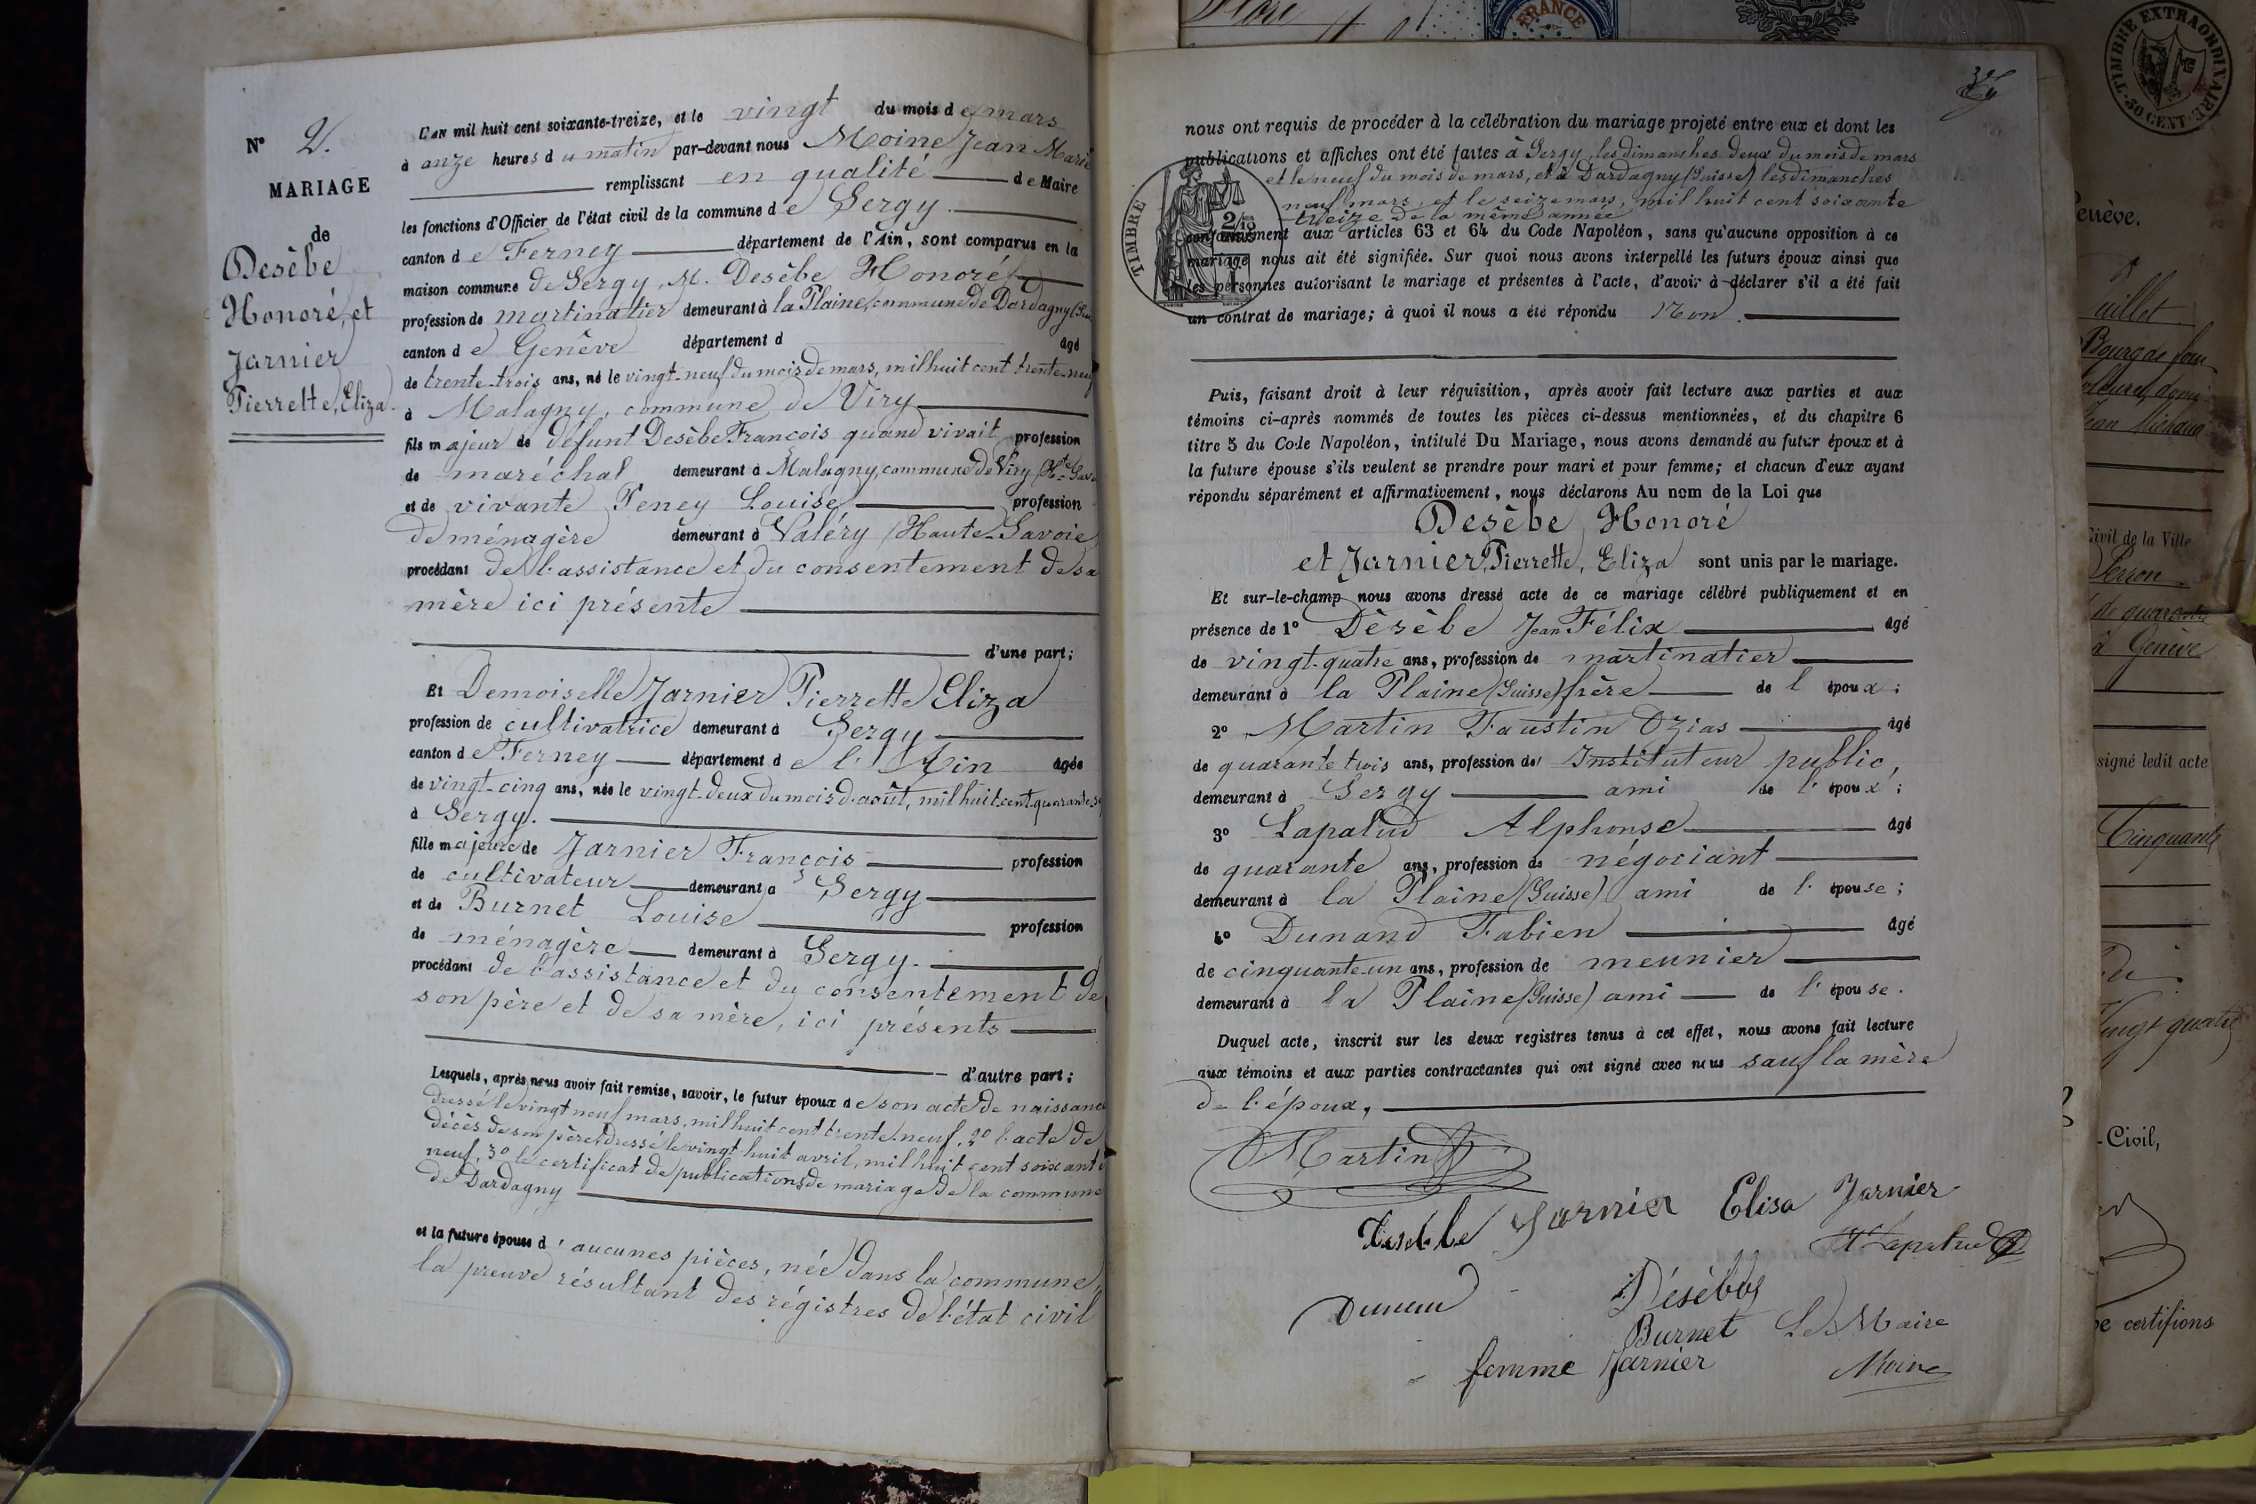 Nº 2.
MARIAGE
de
Desèbe
Honoré, et
Jarnier
Pierrette, Eliza.
L'AN mil huit cent soixante-treize, et le vingt du mois de mars
à onze heures du matin par-devant nous Moine Jean Marie
remplissant en qualité de Maire
les fonctions d'Officier de l'état civil de la commune de Sergy
canton de Ferney département de l'Ain, sont comparus en la
maison commune de Sergy, M. Desèbe Honoré
profession de martinatier demeurant à la Plaine, commune de Dardagny
canton de Genève département d âgé
de trente-trois ans, né le vingt-neuf du mois de mars, mil huit cent trente-neuf
à Malagny, commune de Viry
fils majeur de défunt Desèbe François quand vivait profession
de maréchal demeurant à Malagny, commune de Viry
et de vivante Peney Louise profession
de ménagère demeurant à Valéry (Haute-Savoie
procédant de l'assistance et du consentement de sa
mère ici présente
d'une part;
Et Demoiselle Jarnier Pierrette Eliza
profession de cultivatrice demeurant à Sergy
canton de Ferney département de l'Ain âgée
de vingt-cinq ans, née le vingt-deux du mois d'août, mil huit cent quarante
à Sergy.
fille majeure de Jarnier François profession
de cultivateur demeurant à Sergy
et de Burnet Louise profession
de ménagère demeurant à Sergy.
procédant de l'assistance et du consentement de
son père et de sa mère, ici présents
d'autre part;
Lesquels, après nous avoir fait remise, savoir, le futur époux de son acte de naissance
dressé le vingt neuf mars, mil huit cent trente-neuf, 2º l'acte de
décès de son père, dressé le vingt huit avril, mil huit cent soixante
neuf, 3º le certificat de publications de mariage de la commune
de Dardagny
et la future épouse d'aucunes pièces, née dans la commune,
la preuve résultant des régistres de l'état civil
nous ont requis de procéder à la célébration du mariage projeté entre eux et dont les
publications et affiches ont été faites à Sergy, les dimanches deux du mois de mars
et le neuf du mois de mars, et à Dardagny (Suisse) les dimanches
neuf mars, et le seize mars, mil huit cent soixante
treize de la même année
conformément aux articles 63 et 64 du Code Napoléon, sans qu'aucune opposition à ce
mariage nous ait été signifiée. Sur quoi nous avons interpellé les futurs époux ainsi que
les personnes autorisant le mariage et présentes à l'acte, d'avoir à déclarer s'il a été fait
un contrat de mariage; à quoi il nous a été répondu Non.
TIMBRE
Puis, faisant droit à leur réquisition, après avoir fait lecture aux parties et aux
témoins ci-après nommés de toutes les pièces ci-dessus mentionnées, et du chapitre 6
titre 5 du Code Napoléon, intitulé Du Mariage, nous avons demandé au futur époux et à
la future épouse s'ils veulent se prendre pour mari et pour femme; et chacun d'eux ayant
répondu séparément et affirmativement, nous déclarons Au nom de la Loi que
Desèbe Honoré
et Jarnier, Pierrette, Eliza sont unis par le mariage.
Et sur-le-champ nous avons dressé acte de ce mariage célébré publiquement et en
présence de 1º Désèbe Jean Félix âgé
de vingt-quatre ans, profession de martinatier
demeurant à la Plaine (Suisse) frère de l'époux;
2º Martin Faustin Ozias âgé
de quarante trois ans, profession de Instituteur public,
demeurant à Sergy ami de l'époux;
3º Lapalud Alphonse âgé
de quarante ans, profession de négociant
demeurant à la Plaine (Suisse) ami de l'épouse;
4º Dunand Fabien âgé
de cinquante-un ans, profession de meunier
demeurant à la Plaine (Suisse) ami de l'épouse.
Duquel acte, inscrit sur les deux registres tenus à cet effet, nous avons fait lecture
aux témoins et aux parties contractantes qui ont signé avec nous sauf la mère
de l'époux.
Martin
Jarnier Elisa Jarnier
Burnet Le Maire
femme Jarnier Moine
FRANCE
TIMBRE EXTRAORDINAIRE
50 CENT
Genève.
Civil de la Ville
Perron
de quarante
à Genève
signé ledit acte
Cinquante
Vingt quatre
-Civil,
certifions